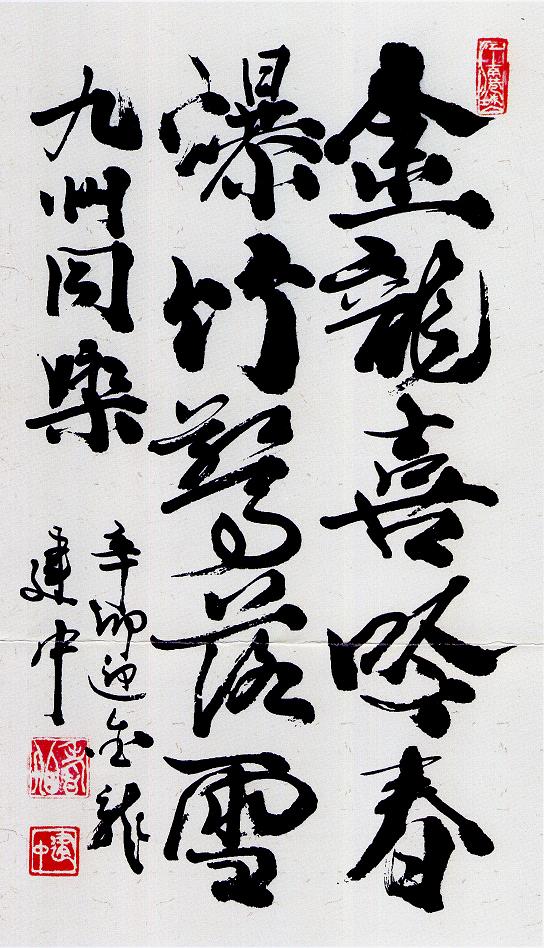 金龍喜吟春
爆竹驚落雪
九州同樂
辛卯迎金龍
建中
建中